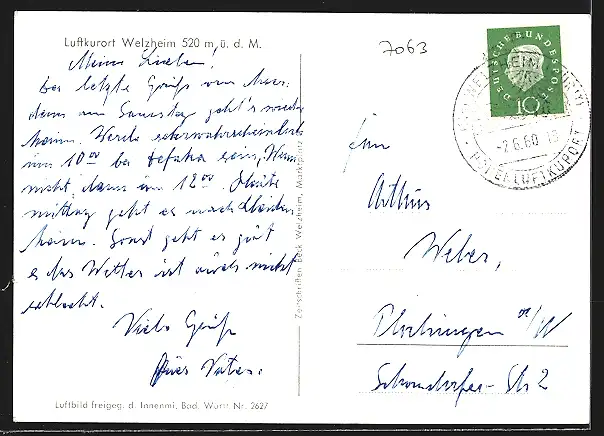 Luftkurort Welzheim 520 m ü. d. M.
7063
Meine Lieben!
Der letzte Gruß von hier:
denn am Samstag geht's wieder
heim. Werde
um 10 00 bei sein, Wenn
nicht, dann um 12 00. Heute
mittag geht es nach
heim. Sonst geht es gut
das Wetter ist auch nicht
schlecht.
Viele Grüße
Euer Vater.
Luftbild freigeg. d. Innenmi. Bad. Württ Nr. 2627
Zeitschriften Beck Welzheim, Marktplatz
DEUTSCHE BUNDESPOST
10
WELZHEIM
-2.6.60 18
HÖHENLUFTKURORT
Herrn
Arthur
Weber,
Plochingen a/N
Schorndorfer-Str 2